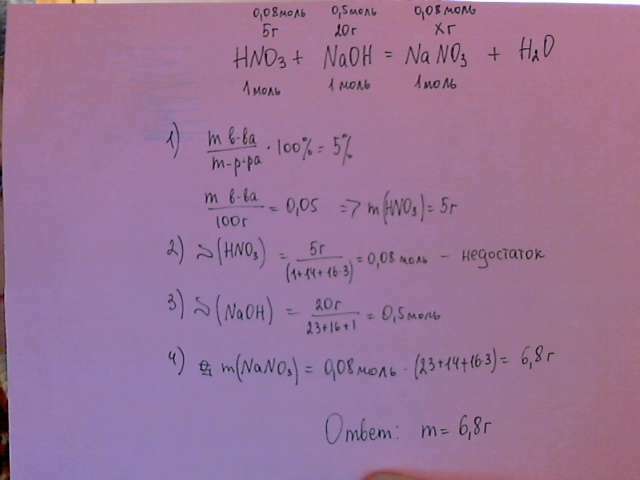 0,08моль 0,5моль 0,08моль
5г 20г xг
HNO₃ + NaOH = NaNO₃ + H₂O
1моль 1моль 1моль
1) m в-ва / m-р-ра · 100% = 5%
m в-ва / 100г = 0,05 => m(HNO₃) = 5г
2) ν(HNO₃) = 5г / (1+14+16·3) = 0,08 моль – недостаток
3) ν(NaOH) = 20г / 23+16+1 = 0,5моль
4) m(NaNO₃) = 0,08моль · (23+14+16·3) = 6,8г
Ответ: m = 6,8г